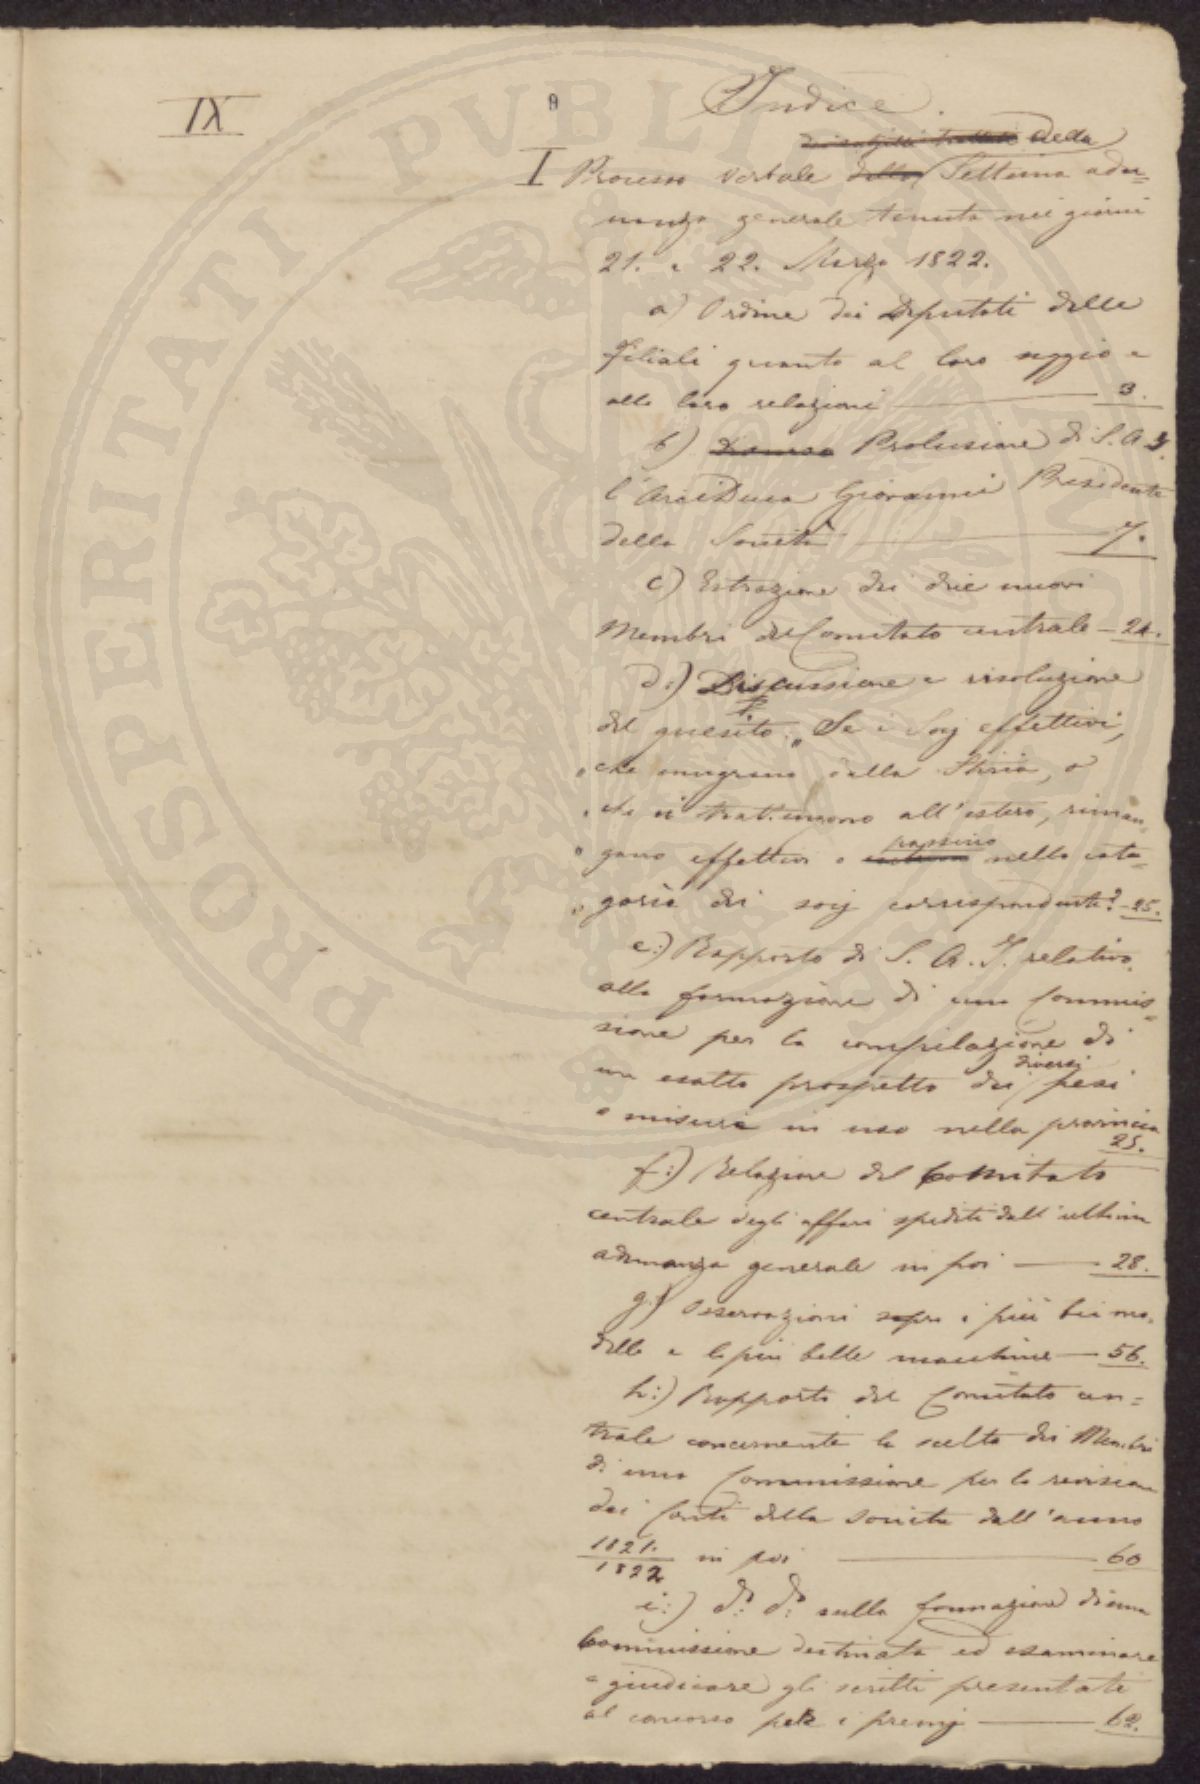 IX
9
Indice.
della
I Processo verbale della Settima adu=
nanza generale tenuta nei giorni
21. e 22. Marzo 1822.
a) Ordine dei Deputati delle
filiali quanto al loro seggio e
alle loro relazioni — 3.
b) Discorso Prolusione di S. A. I.
l'Arciduca Giovanni Presidente
della Società — 7.
c) Estrazione dei due nuovi
Membri del Comitato centrale — 24.
d:) Discussione e risoluzione
del quesito: „ Se i Socj effettivi,
„ che emigrano dalla Stiria, o
„ che si trattengono all'estero, riman=
„ gano effettivi o passino nella cate=
„ goria dei socj corrispondenti? — 25.
e:) Rapporto di S. A. I. relativo
alla formazione di una Commis=
sione per la compilazione di
un esatto prospetto dei diversi pesi
e misure in uso nella provincia
25.
f:) Relazione del Comitato
centrale degli affari spediti dall'ultima
adunanza generale in poi — 28.
g:) Osservazioni sopra i più bei mo=
delli e le più belle macchine — 56.
h:) Rapporto del Comitato cen=
trale concernente la scelta dei Membri
di una Commissione per la revisione
dei Conti della Società dall'anno
1821./1822 in poi — 60
i:) d:º d:º sulla formazione di una
Commissione destinata ed esaminare
e giudicare gli scritti presentati
al concorso per i premj — 62.
PROSPERITATI PVBLICAE